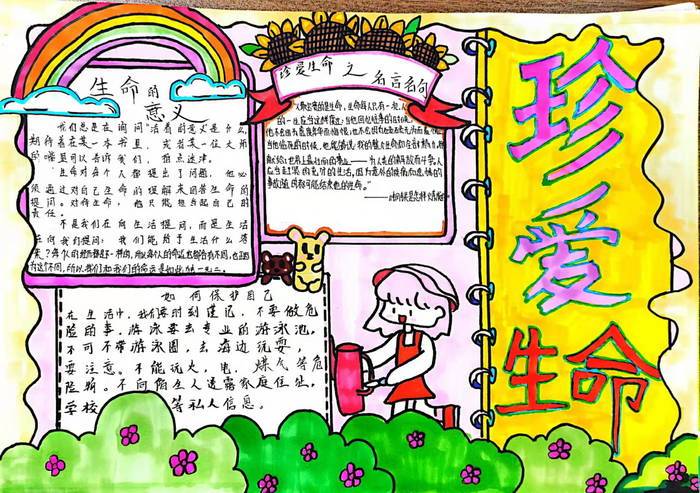 珍爱
生命
生命的
意义
我们总是在询问"活着的意义是什么,
期待着在某一本书里,或者某一位大师
的嘴里可以告诉我们,指点迷津。
生命对每个人都提出了问题,他必
须通过对自己生命的理解来回答生命的
提问。对待生命,他只能担当起自己的
责任。
不是我们在向生活提问,而是生活
在向我们提问:我们能给予生活什么
为这个不同,所以我们和我们的命运是如此独一无二。
珍爱生命之名言名句
人最宝贵的是生命,生命每人只有一次,人
的一生应当这样度过:当他回忆往事的时候,
他不会因为虚度年华而悔恨,也不会因为碌碌无为而羞愧,
——《钢铁是怎样炼成的》
如何保护自己
在生活中,我们要时刻谨记,不要做危
险的事。游泳要去专业的游泳池,
不可不带游泳圈,去海边玩耍,
要注意。不能玩火,电,煤气等危
险物。不向陌生人透露家庭住址,
学校 等私人信息。